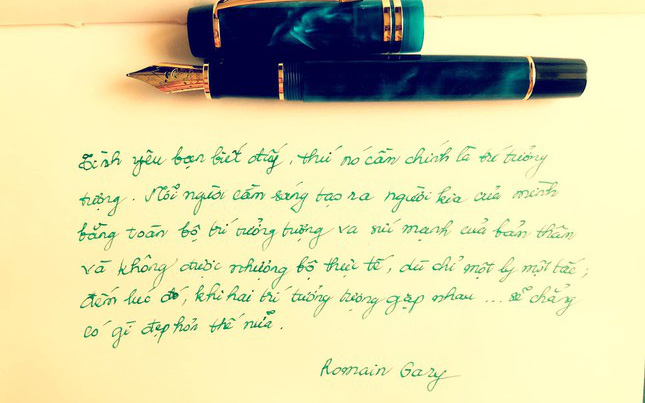 Tình yêu bạn biết đấy, thứ nó cần chính là trí tưởng
tượng. Mỗi người cần sáng tạo ra người kia của mình
bằng toàn bộ trí tưởng tượng và sức mạnh của bản thân
và không được nhượng bộ thực tế, dù chỉ một ly một tấc;
đến lúc đó, khi hai trí tưởng tượng gặp nhau ... sẽ chẳng
có gì đẹp hơn thế nữa.
Romain Gary